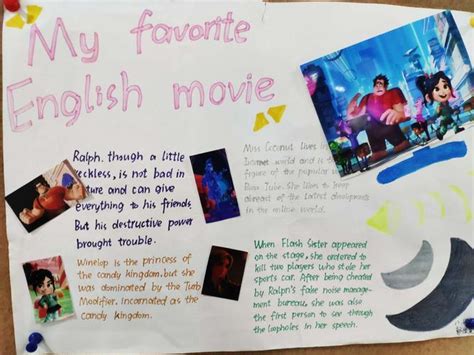 My favorite
English movie
Ralph, though a little
reckless, is not bad in
nature and can give
everything to his friends.
But his destructive power
brought trouble.
Winelop is the princess of
the candy kingdom, but she
was dominated by the Turb
Modifier, incarnated as the
Candy kingdom.
Miss Coconut lives in
Internet world and is
figure of the popular
Tube. She Wants to keep
abreast of the latest developments
in the online world.
When Flash Sister appeared
on the stage, she ordered to
kill two players who stole her
sports car. After being cheated
by Ralph's fake noise manage-
ment bureau, she was also
the first person to see through
the loopholes in her speech.